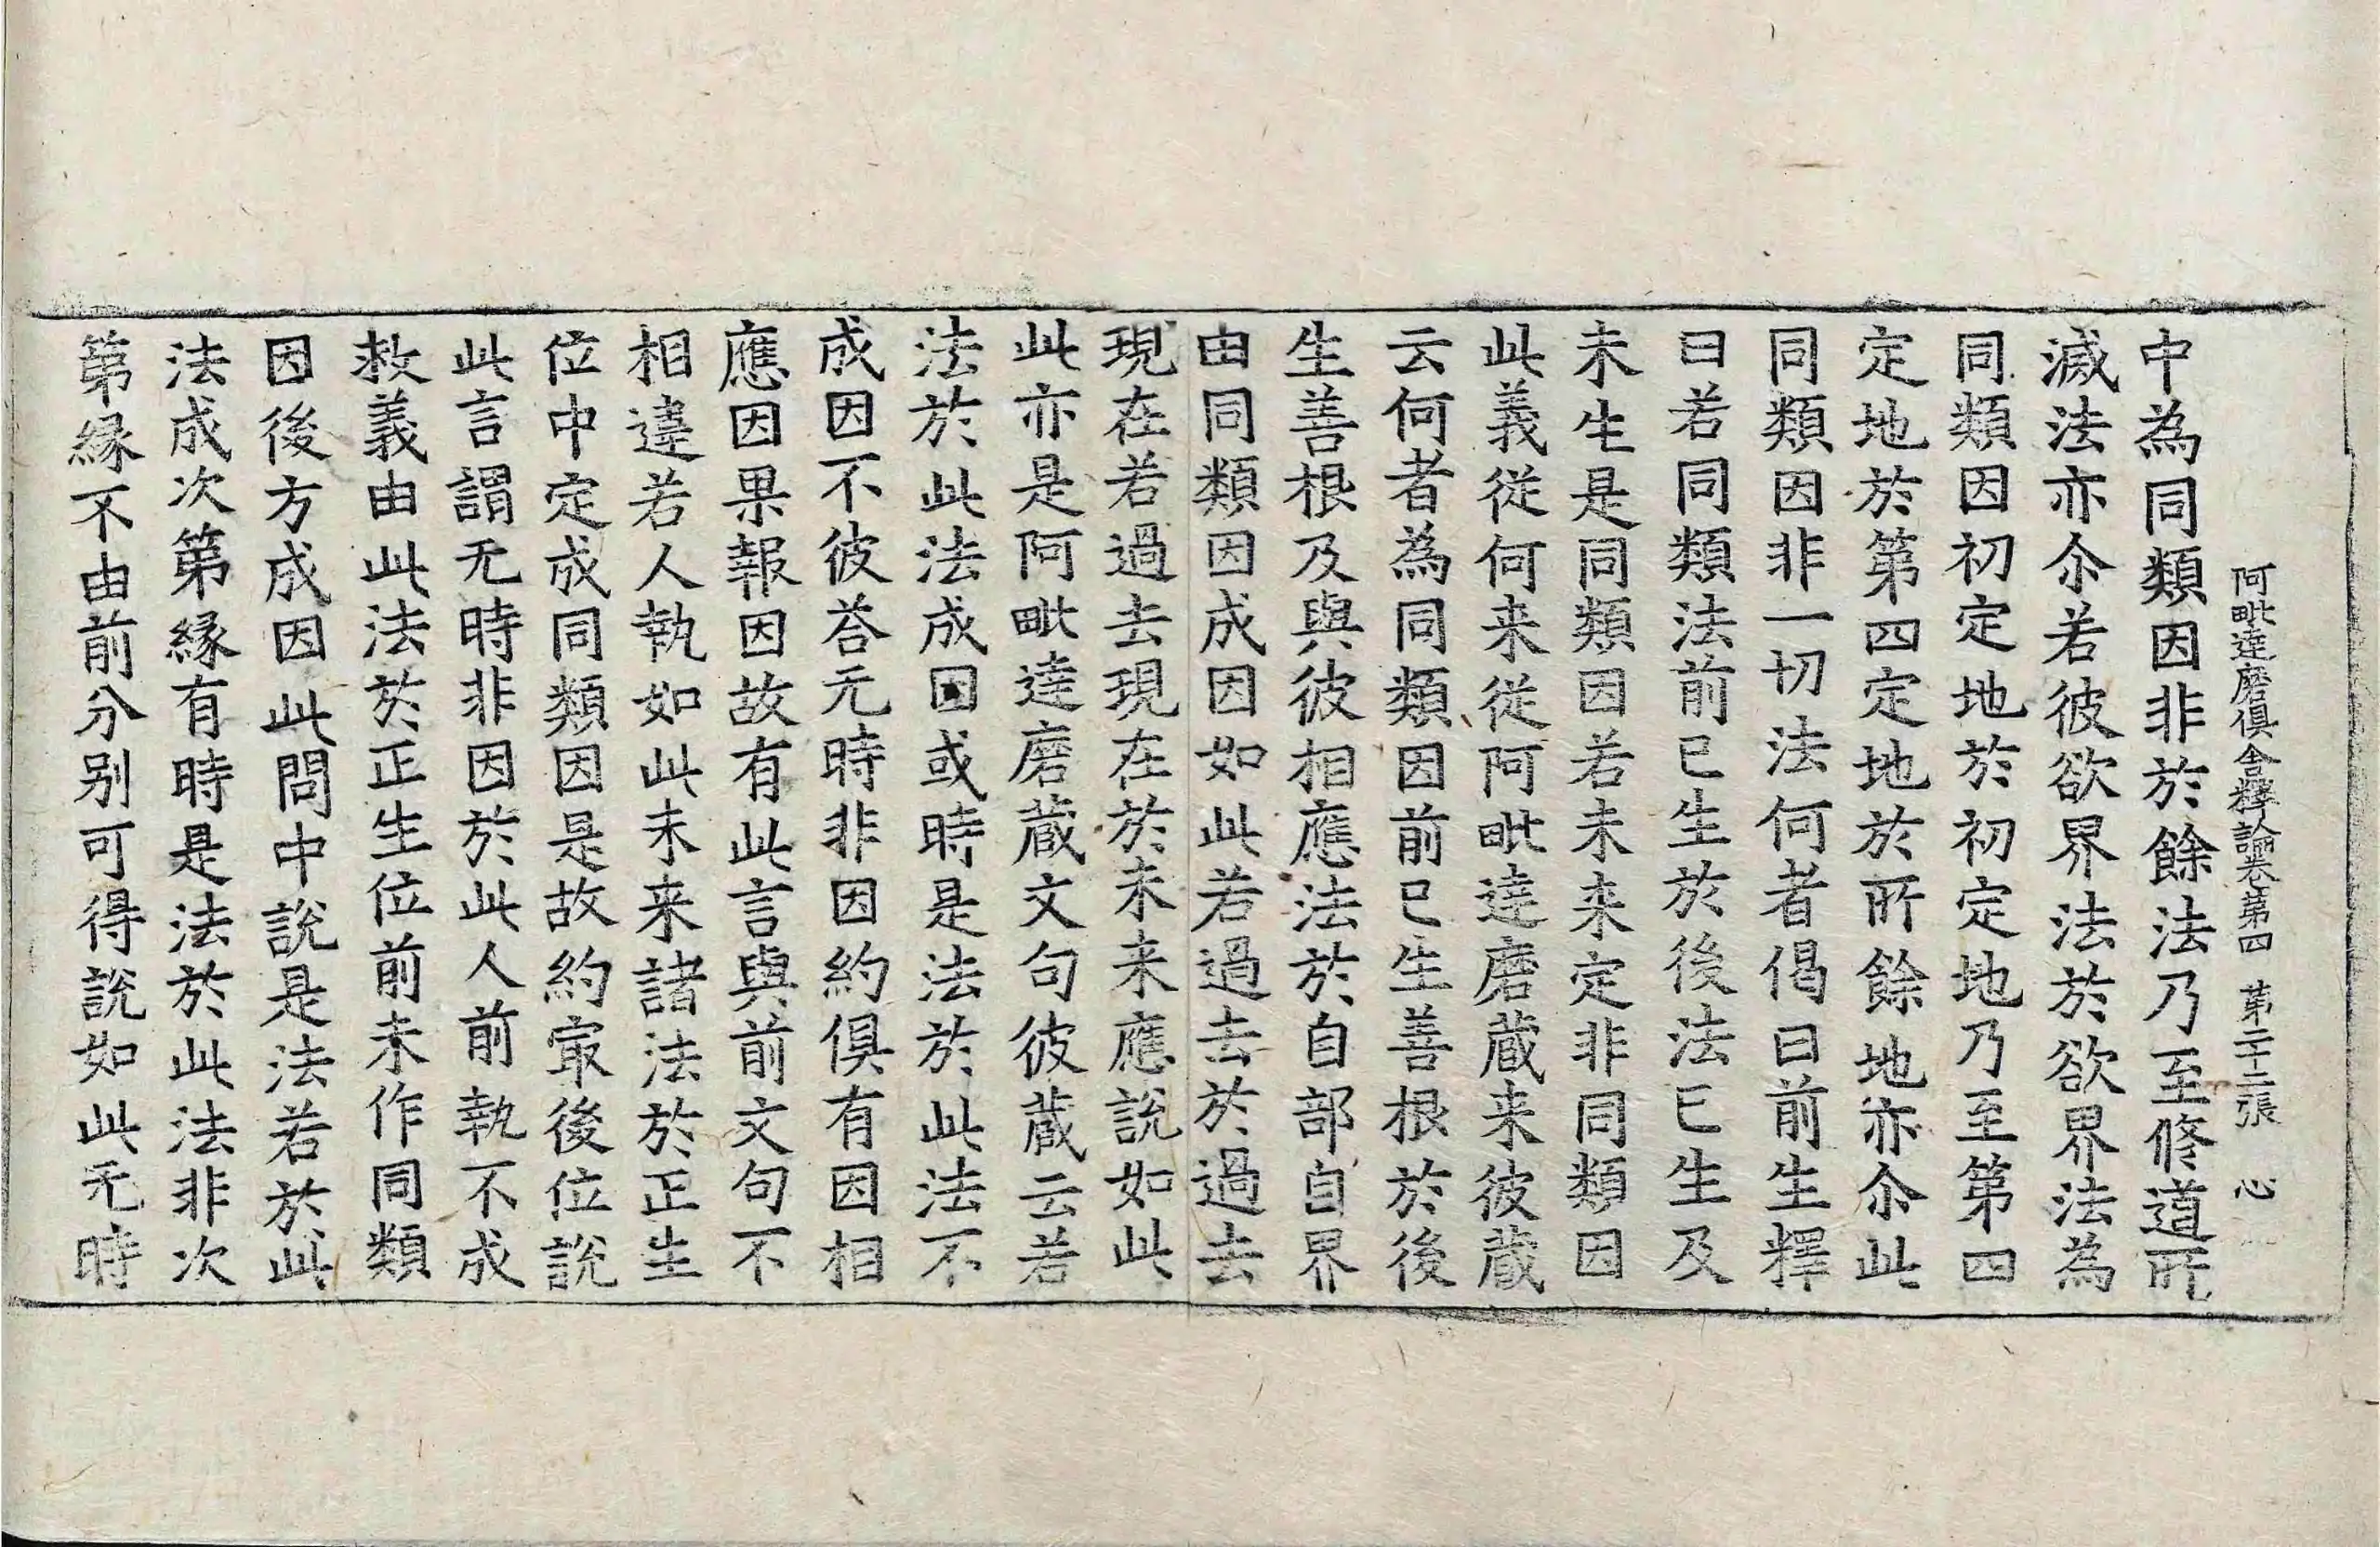 阿毗達磨俱舍釋論卷第四　第二十二張　心
中為同類因非於餘法乃至修道所
滅法亦尒若彼欲界法於欲界法為
同類因初定地於初定地乃至第四
定地於第四定地於所餘地亦尒此
同類因非一切法何者偈曰前生釋
曰若同類法前已生於後法已生及
未生是同類因若未来定非同類因
此義從何来從阿毗達磨蔵来彼蔵
云何者為同類因前已生善根於後
生善根及與彼相應法於自部自界
由同類因成因如此若過去於過去
現在若過去現在於未来應說如此
此亦是阿毗達磨蔵文句彼蔵云若
法於此法成因或時是法於此法不
成因不彼荅无時非因約俱有因相
應因果報因故有此言與前文句不
相違若人執如此未来諸法於正生
位中定成同類因是故約㝡後位說
此言謂无時非因於此人前執不成
救義由此法於正生位前未作同類
因後方成因此問中說是法若於此
法成次第縁有時是法於此法非次
第縁不由前分別可得說如此无時